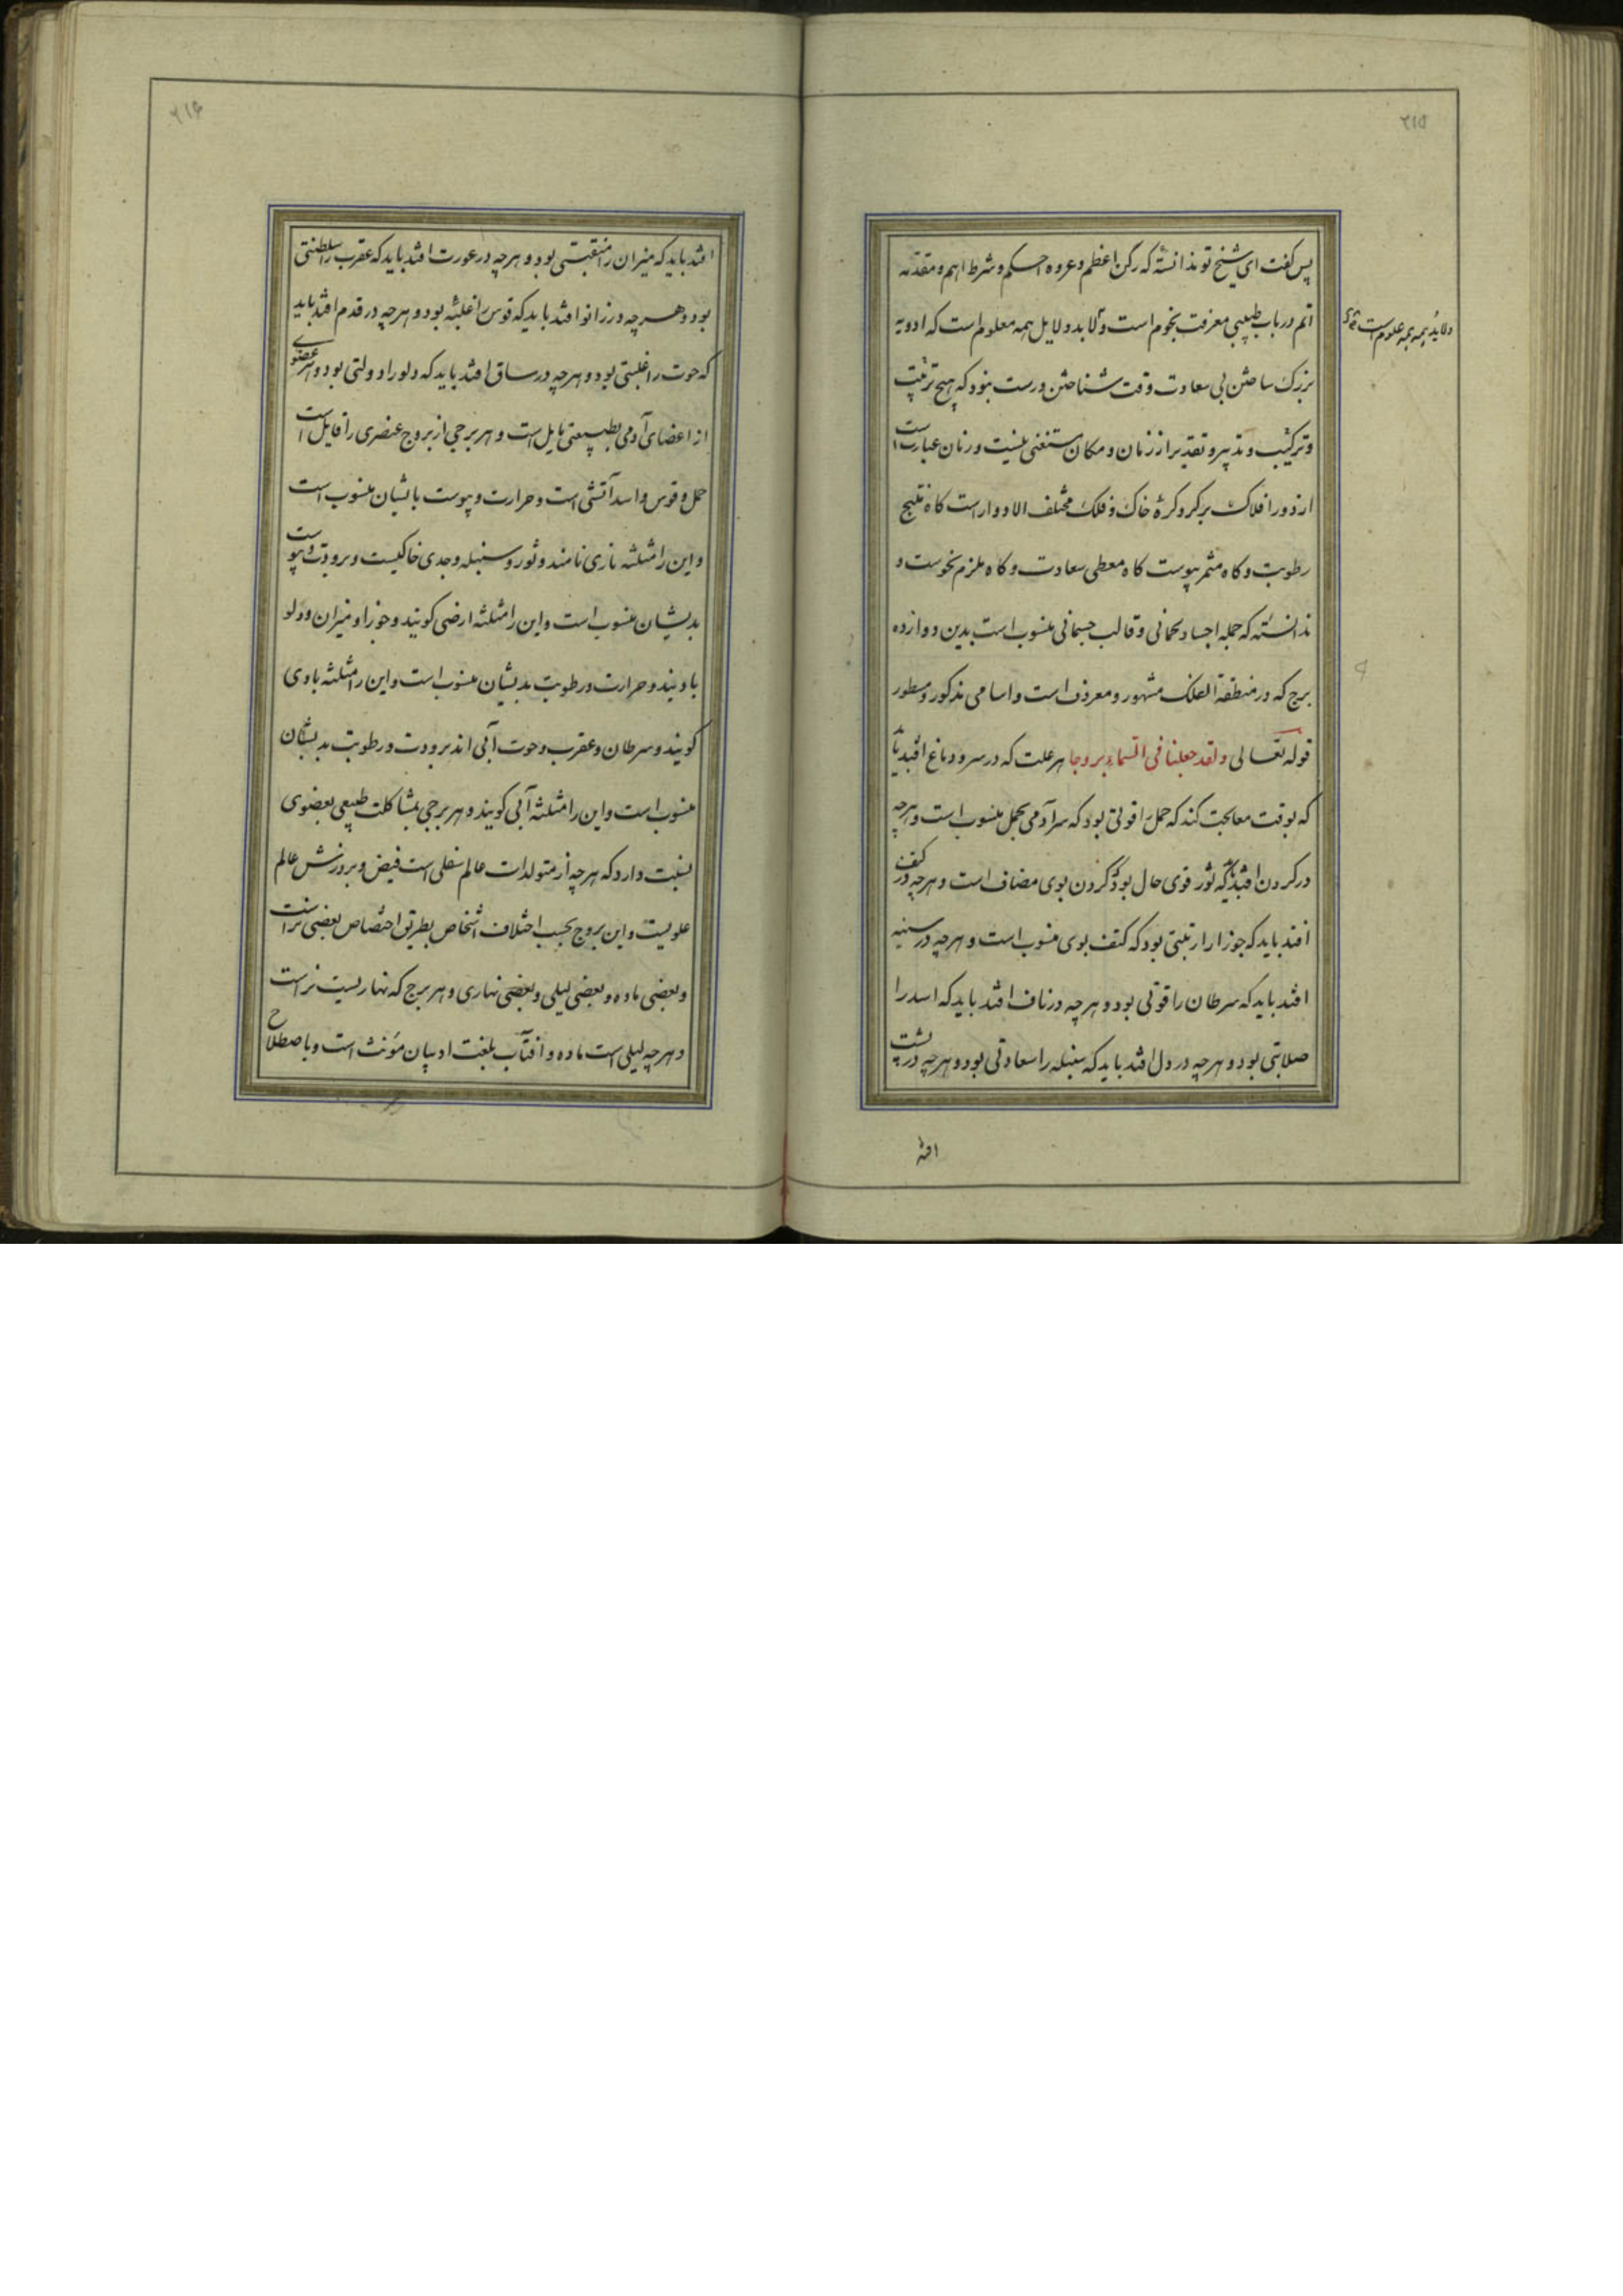 ۲۱۵
پس گفت ای شیخ تو ندانسته که رکن اعظم و عروه احکم و شرط اهم و مقدمه
اتم در باب طبیبی معرفت نجوم است و لابد و لایل همه معلوم است که ادویه
ولابد همه همه علوم است
بزرک ساختن بی سعادت وقت شناختن درست نبود که هیچ ترتیب
و ترکیب و تدبیر و تقدیر از زمان و مکان مستغنی نیست و زمان عبارت است
از دور افلاک برکرد کرهٔ خاک و فلک مختلف الادوار است کاه منتج
رطوبت و کاه مثمر یبوست کاه معطی سعادت و کاه ملزم نحوست و
ندانسته که جمله اجساد لحمانی و قالب جسمانی منسوب است بدین دوازده
برج که در منطقة الفلک مشهور و معروف است و اسامی مذکور و مسطور
قوله تعالی ولقد جعلنا فی السماء بروجا هر علت که در سر و دماغ افتد باید
که بوقت معالجت کند که حمل را قوتی بود که سر آدمی بحمل منسوب است و هرچه
در کردن افتد باید که ثور قوی حال بود که کردن بوی مضاف است و هرچه در کتف
افتد باید که جوزا را رتبتی بود که کتف بوی منسوب است و هرچه در سینه
افتد باید که سرطان را قوتی بود و هرچه در ناف افتد باید که اسد را
صلابتی بود و هرچه در دل افتد باید که سنبله را سعادتی بود و هرچه در پشت
افتد
۲۱۶
افتد باید که میزان را منقبتی بود و هرچه در عورت افتد باید که عقرب را سلطنتی
بود و هرچه در زانو افتد باید که قوس را غلبه بود و هرچه در قدم افتد باید
که حوت را غلبتی بود و هرچه در ساق افتد باید که دلو را دولتی بود و هر عضوی
از اعضای آدمی بطبیعتی مایل است و هر برجی از بروج عنصری را قابل است
حمل و قوس و اسد آتشی است و حرارت و یبوست بایشان منسوب است
و این را مثلثه ناری نامند و ثور و سنبله و جدی خاکیست و برودت و یبوست
بدیشان منسوب است و این را مثلثه ارضی کویند و جوزا و میزان و دلو
بادیند و حرارت و رطوبت بدیشان منسوب است و این را مثلثه بادی
کویند و سرطان و عقرب و حوت آبی اند برودت و رطوبت بدیشان
منسوب است و این را مثلثه آبی کویند و هر برجی بمشاکلت طبیعی بعضوی
نسبت دارد که هرچه از متولدات عالم سفلی است فیض و پرورش عالم
علویست و این بروج بحسب اختلاف اشخاص بطریق اختصاص بعضی نر است
و بعضی ماده و بعضی لیلی و بعضی نهاری و هر برج که نهاریست نر است
و هرچه لیلی است ماده و افتاب بلغت ادیبان مؤنث است و باصطلاح